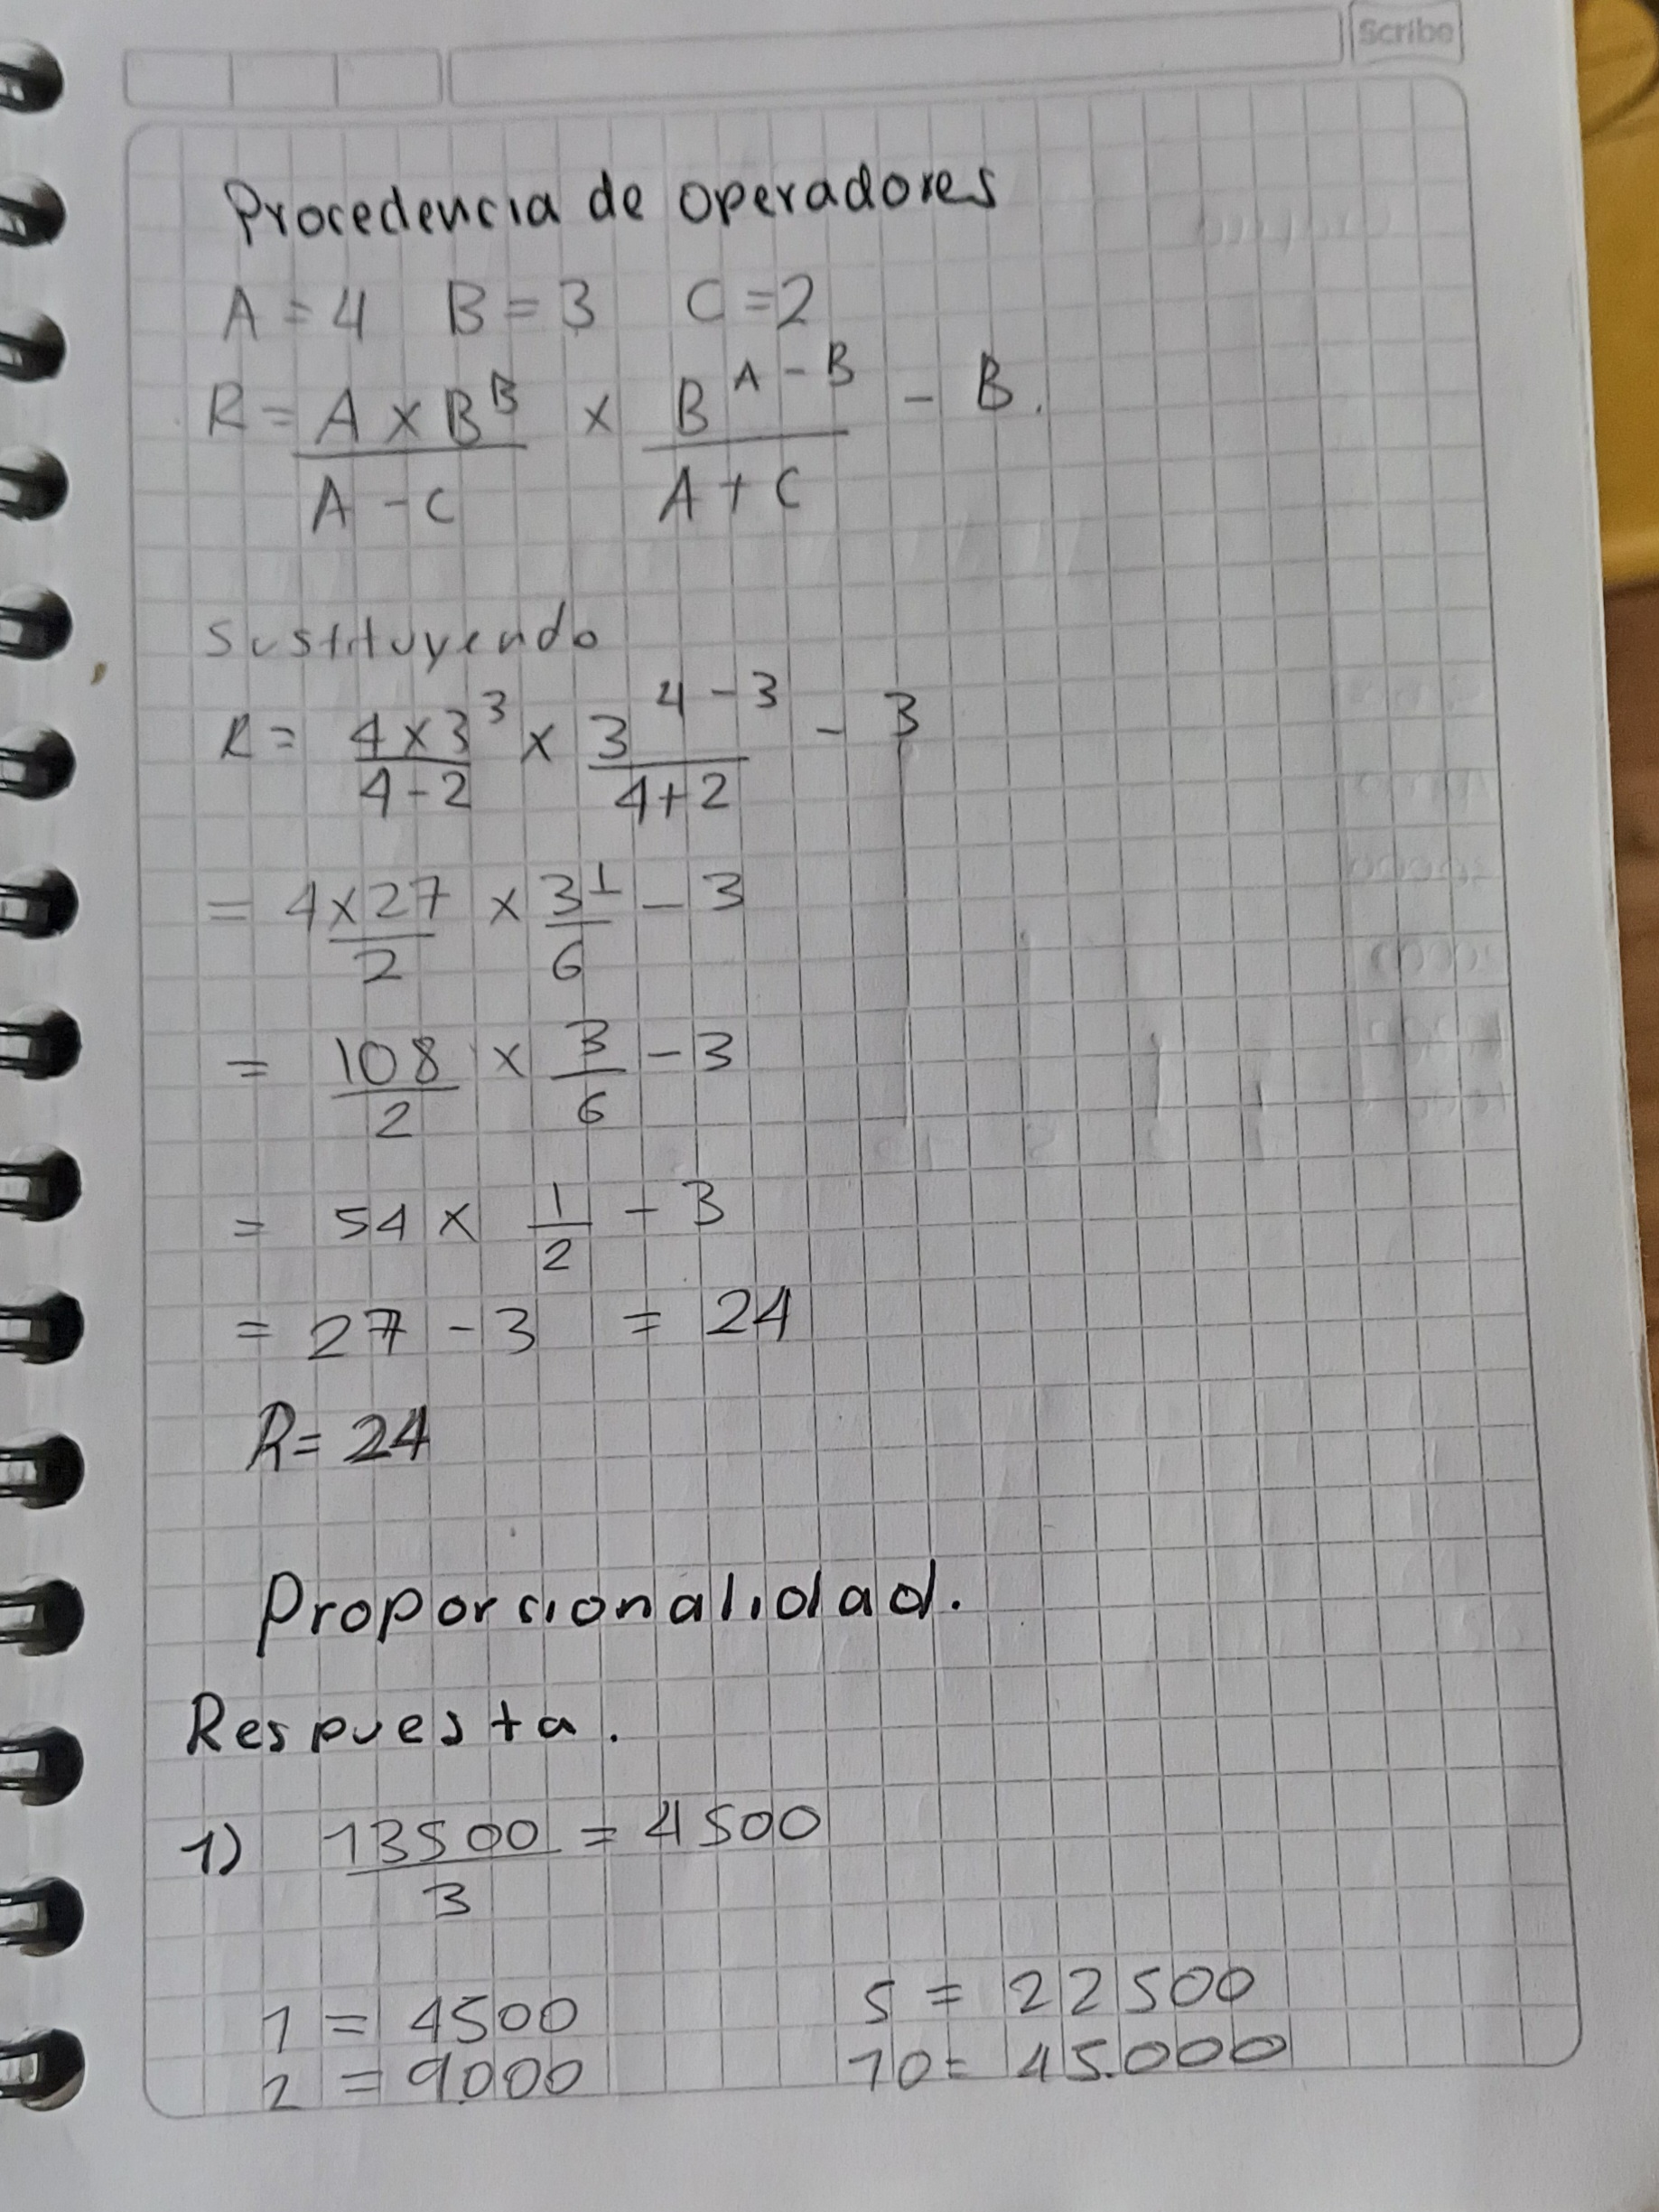 Scribe
Procedencia de operadores
A = 4 B = 3 C = 2
R = A x B^B / A - C x B^A - B / A + C - B.
Sustituyendo
R = 4 x 3^3 / 4 - 2 x 3^4 - 3 / 4 + 2 - 3
= 4 x 27 / 2 x 3^1 / 6 - 3
= 108 / 2 x 3 / 6 - 3
= 54 x 1 / 2 - 3
= 27 - 3 = 24
R = 24
Proporcionalidad.
Respuesta.
1) 13500 / 3 = 4500
1 = 4500 5 = 22500
2 = 9.000 10 = 45.000